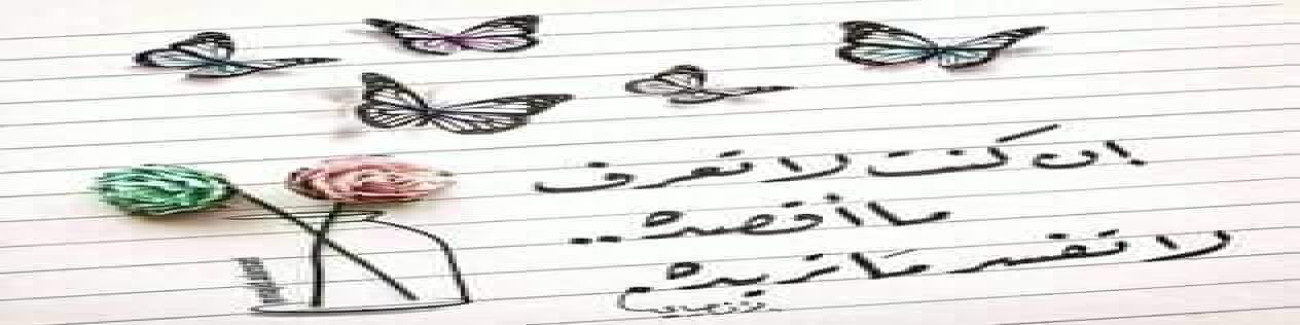 ان كنت لا تعرف
ما أقصده..
لا تفسر ما تريده